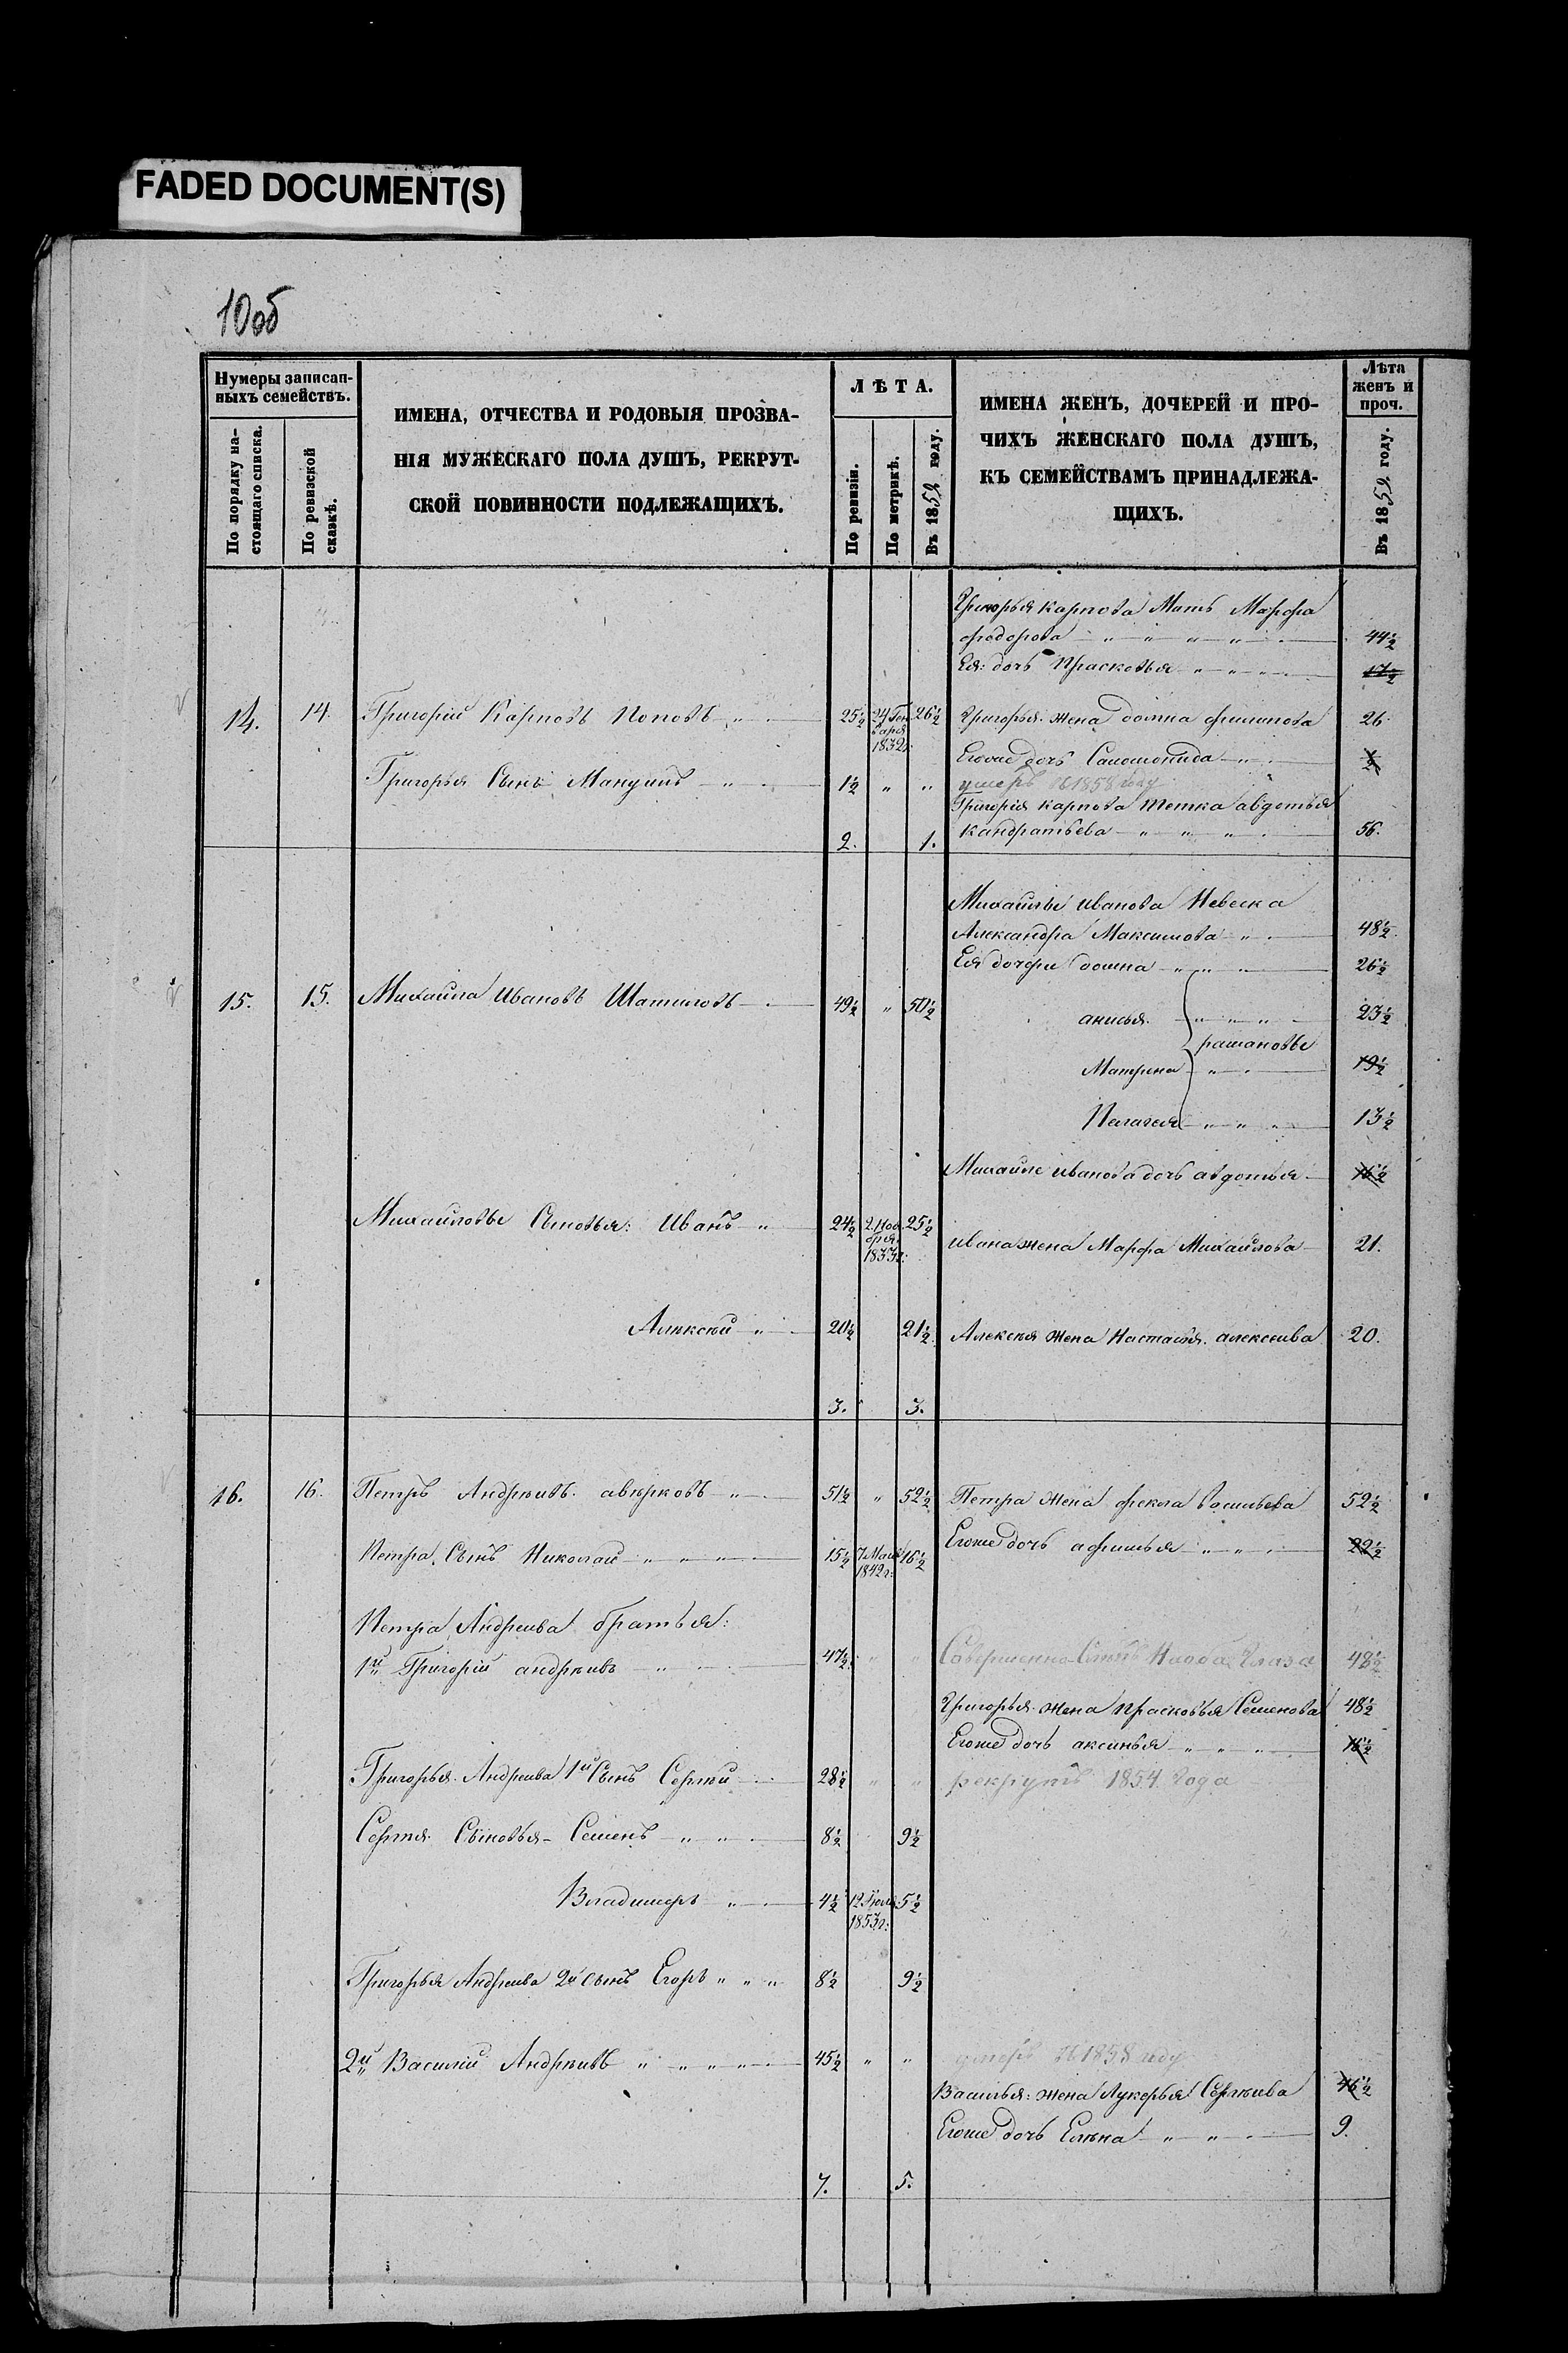 FADED DOCUMENT(S)
10об
Нумеры записан-
ныхъ семействъ.
По порядку на-
стоящаго списка.
По ревизской
сказкѣ.
ИМЕНА, ОТЧЕСТВА И РОДОВЫЯ ПРОЗВА-
НІЯ МУЖЕСКАГО ПОЛА ДУШЪ, РЕКРУТ-
СКОЙ ПОВИННОСТИ ПОДЛЕЖАЩИХЪ.
ЛѢТА.
По ревизіи.
По метрикѣ.
Въ 1859 году.
ИМЕНА ЖЕНЪ, ДОЧЕРЕЙ И ПРО-
ЧИХЪ ЖЕНСКАГО ПОЛА ДУШЪ,
КЪ СЕМЕЙСТВАМЪ ПРИНАДЛЕЖА-
ЩИХЪ.
Лѣта
женъ и
проч.
Въ 1859 году.
Григорья Карпова Мать Марфа
Фодорова " " " " 44½
Ея: дочь Прасковья " " " 17½
14. 14. Григорій Карповъ Поповъ " 25½ 24 Ген 26½ Григорья жена домна филипова 26
варя
1832г:
Егоже дочь Саломонида " ½
Григорья Сынъ Мануилъ " 1½ " " умеръ въ 1858 году
Григорія карпова тетка авдотья
Кандратьева " " " 56.
2. 1.
Михайлы иванова Невеска
Александра Максимова " 48½
Ея дочери домна " " " 26½
15. 15. Михайла Ивановъ Шатиловъ 49½ " 50½
анисья " " " 23½
рамановы
Матрена " 19½
Пелагея " " " 13½
Михайле иванова дочь авдотья 16½
Михайловы Сыновья: Иванъ " 24½ 2. Нояб 25½
бря
1833г:
ивана жена Марфа Михайлова 21.
Алексѣй " 20½ 21½ Алексѣя жена Настасья алексѣива 20.
3. 3.
16. 16. Петръ Андрѣивъ авѣрковъ " 51½ " 52½ Петра жена фекла васильева 52½
Петра Сынъ Николай " " " 15½ 7 Мая 16½ Егоже дочь афимья " " 22½
1842г:
Петра Андреива братья:
1й Григорій андрѣивъ " 47½ " " Совершенно Слѣпъ На оба Глаза 48½
Григорья жена прасковья Семенова 48½
Егоже дочь аксинья " " " 16½
Григорья Андреива 1й Сынъ Сергѣй 28½ " " рекрутъ 1854 Года
Сергѣя Сыновья Семенъ " " 8½ 9½
Владимеръ " 4½ 12 Іюля 5½
1853г:
Григорья Андреива 2й сынъ Егоръ " " " 8½ 9½
2й Василій Андрѣивъ " " " " 45½ " " умеръ въ 1858 году
Василья: жена Лукерья Сергѣива 46½
Егоже дочь Елѣна " " 9.
7. 5.